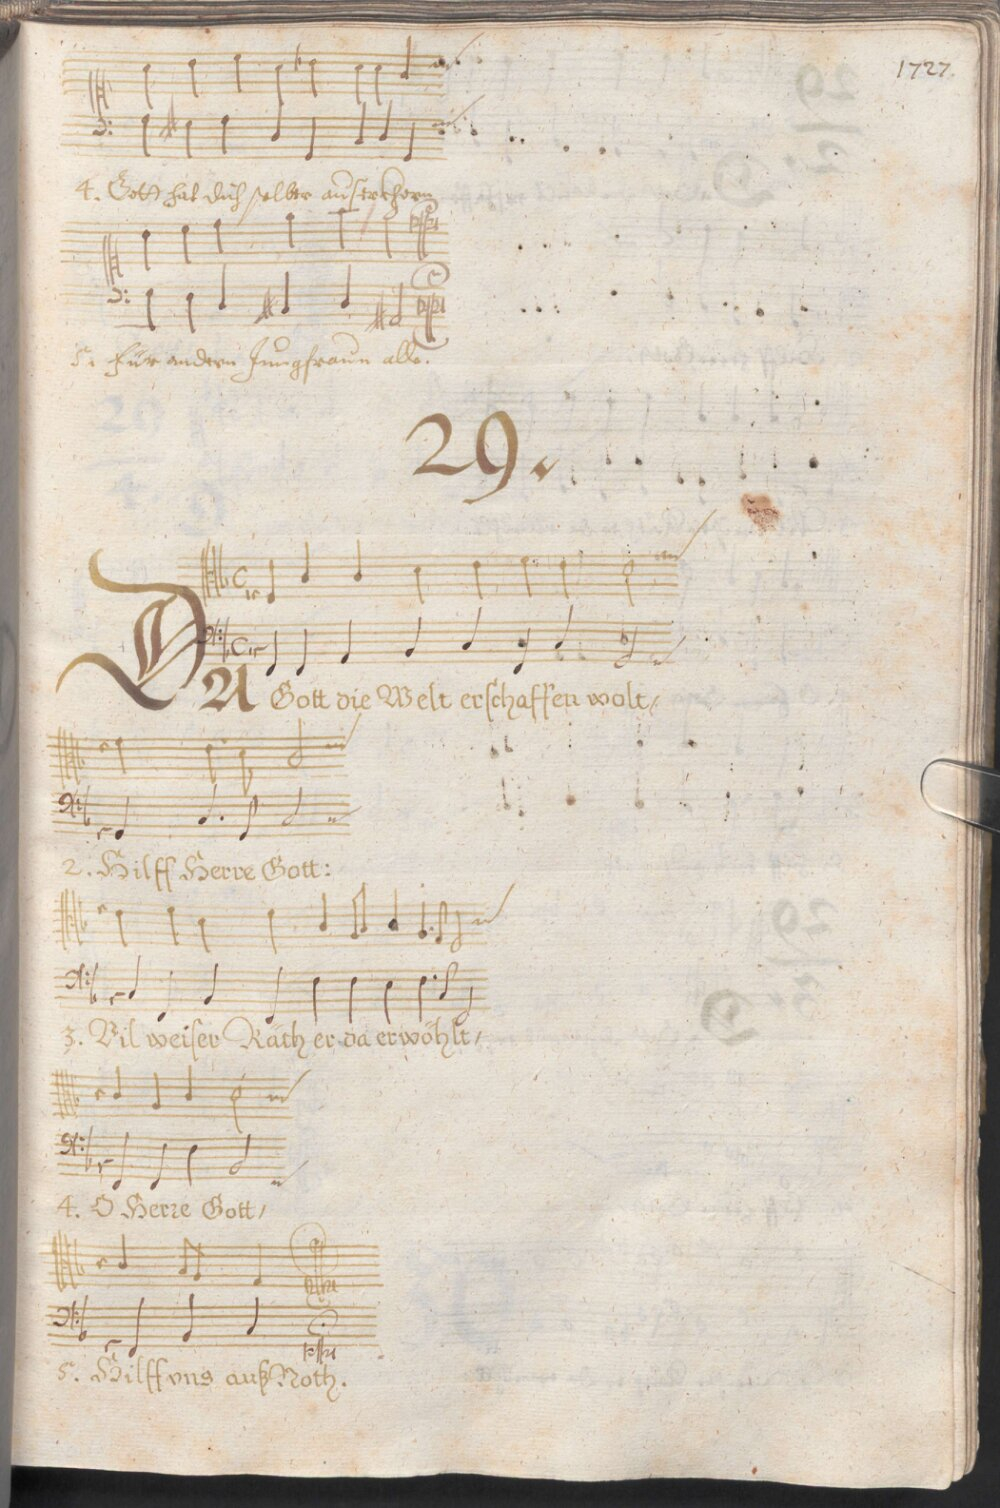 1727.
4. Gott hat dich selber außerkhorn
5. Für andern Jungfraun alle.
29.
DA Gott die Welt erschaffen wolt/
2. Hilff Herre Gott:
3. Vil weiser Räth er da erwöhlt/
4. O Herre Gott/
5. Hilff vns auß Noth.